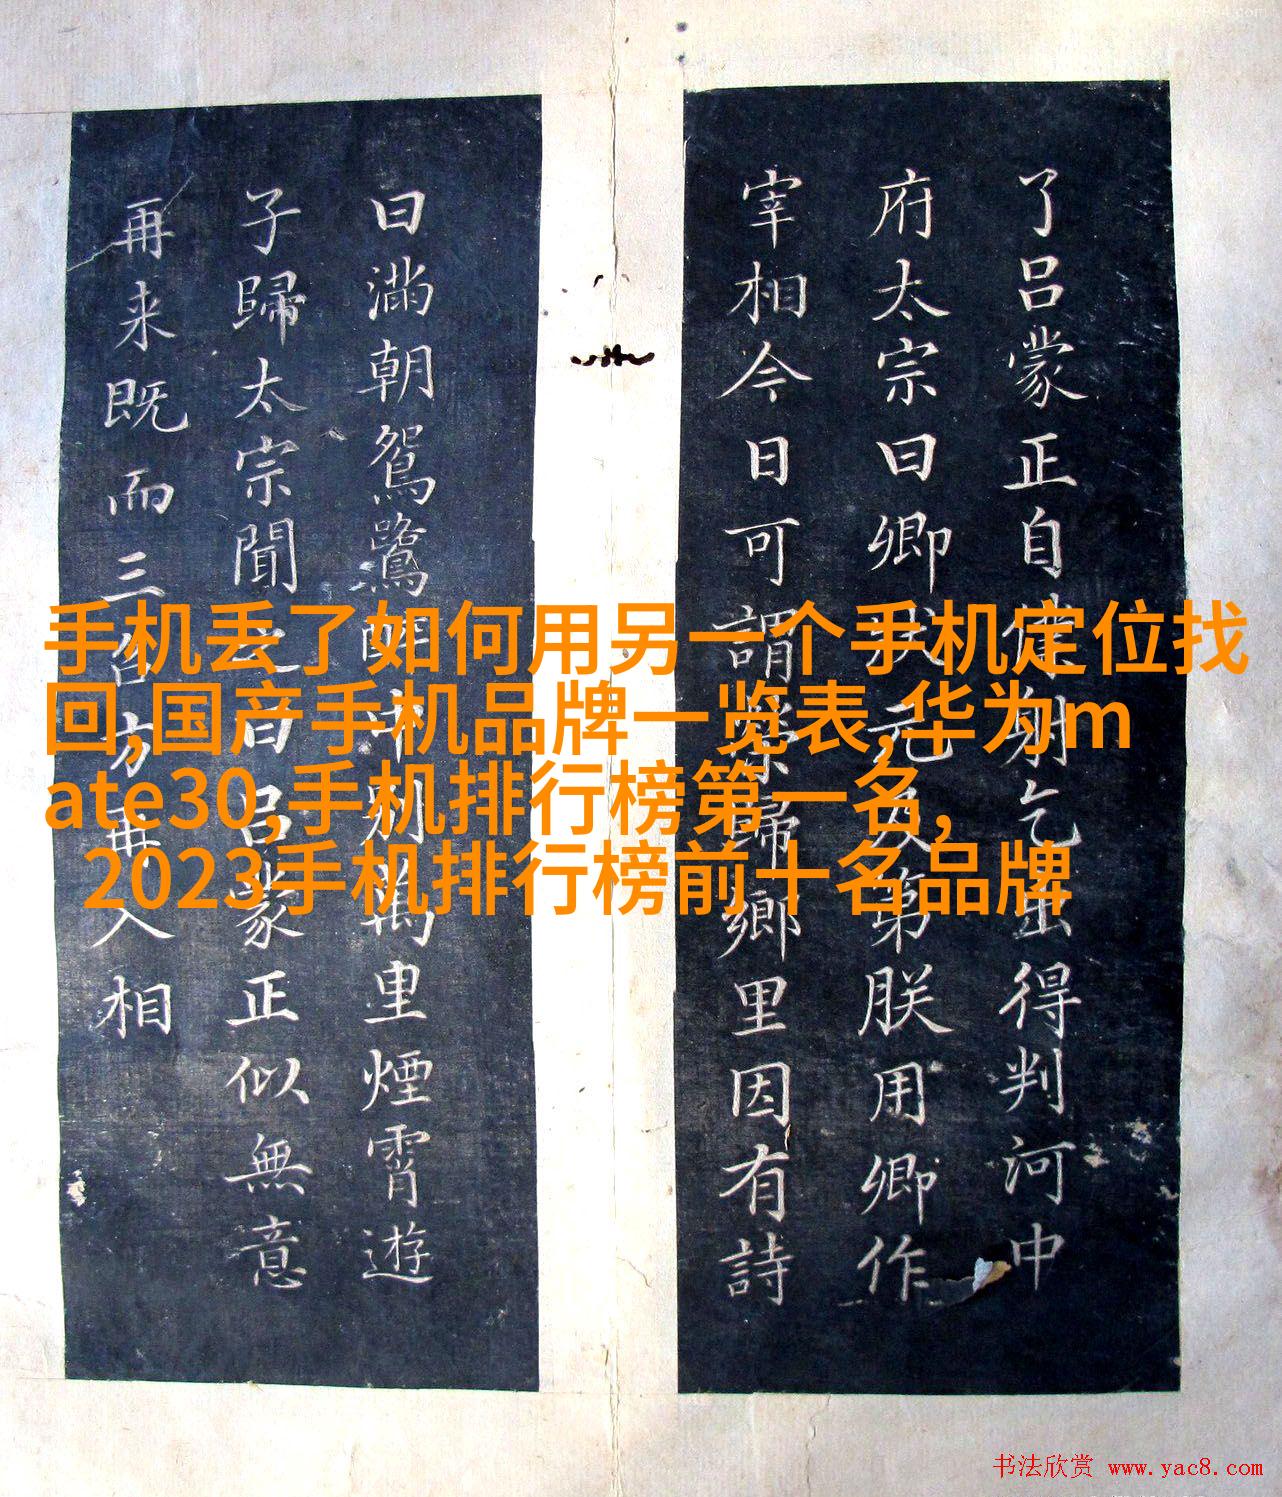 手机丢了如何用另一个手机定位找
回,国产手机品牌一览表,华为m
ate30,手机排行榜第一名,
2023手机排行榜前十名品牌
了吕蒙正自謝乞出得判河中
府太宗曰卿状元及第朕用卿作
宰相今日可謂榮歸鄉里因有詩
曰滿朝鴛鷺中別萬里煙霄遊
子歸太宗聞之曰吕蒙正似無意
再来既而三方再入相
书法欣赏 www.yac8.com